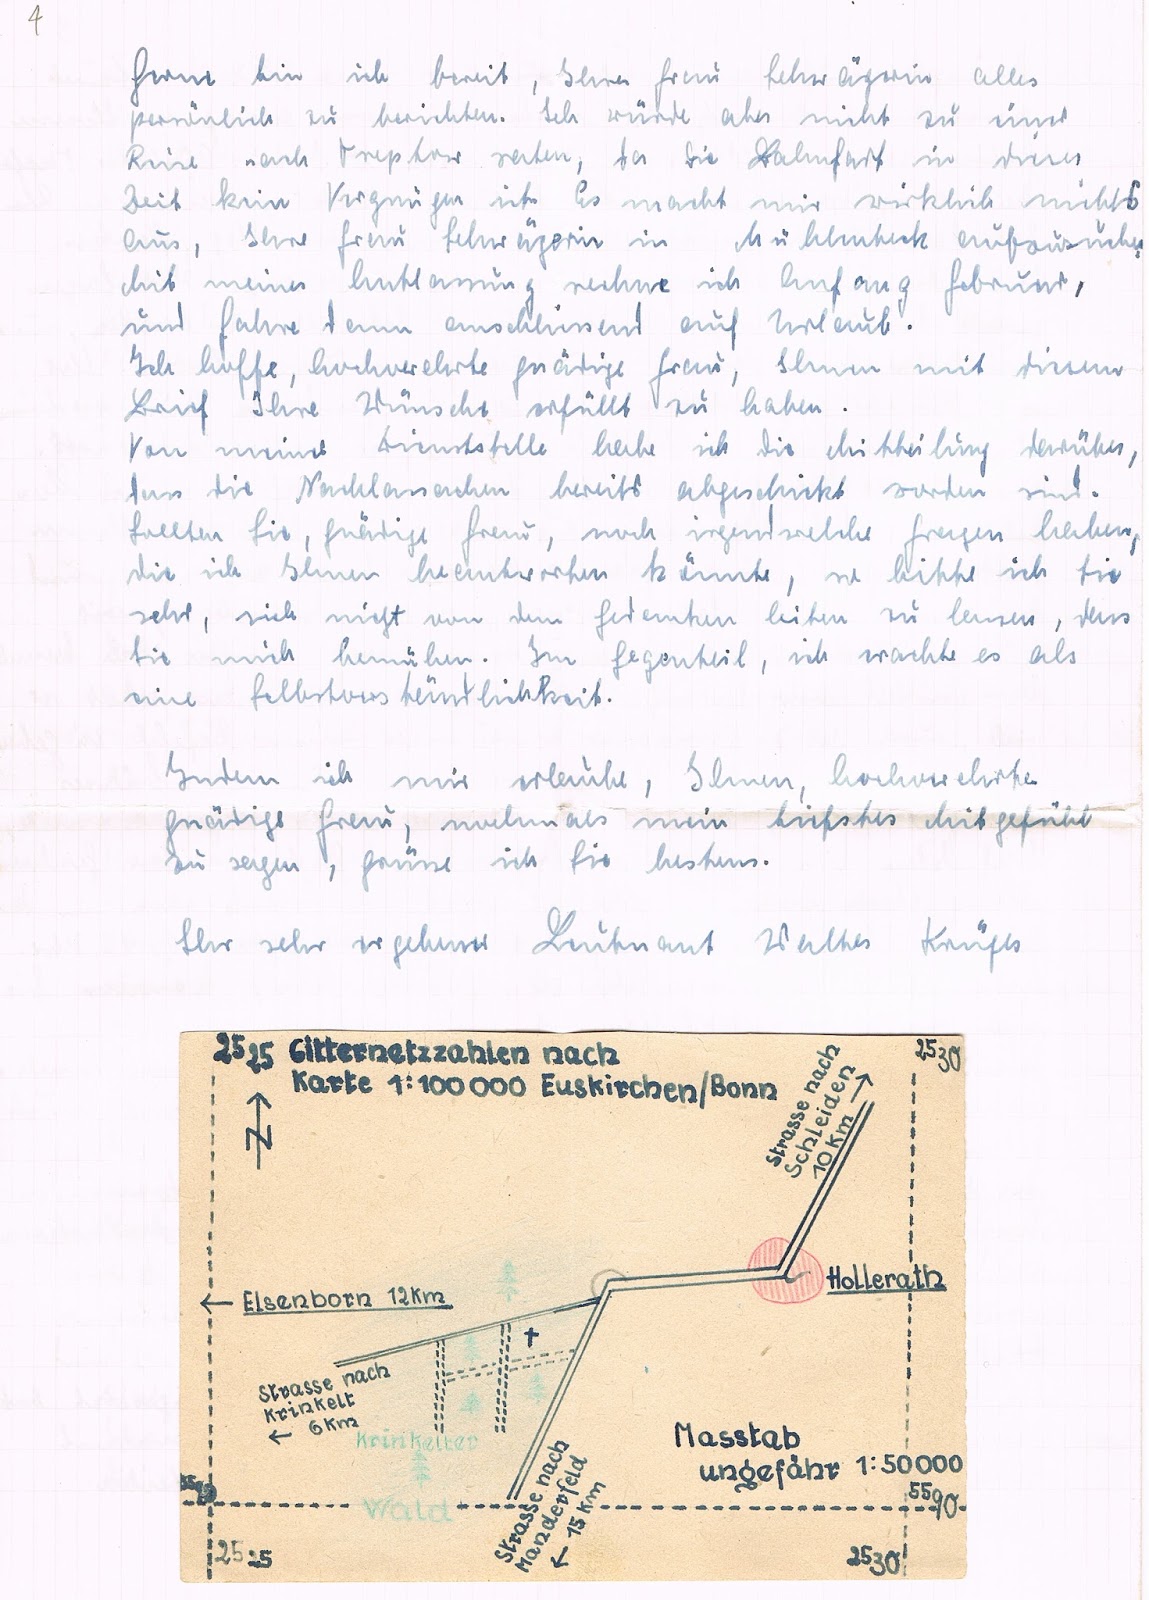 4
Gerne bin ich bereit, Ihrer Frau Schwägerin alles
persönlich zu berichten. Ich würde aber nicht zu einer
Reise nach Treptow raten, da die Bahnfart in dieser
Zeit kein Vergnügen ist. Es macht mir wirklich nichts
aus, Ihre Frau Schwägerin in Mühlenbeck aufzusuchen.
Mit meiner Entlassung rechne ich Anfang Februar,
und fahre dann anschliessend auf Urlaub.
Ich hoffe, hochverehrte gnädige Frau, Ihnen mit diesem
Brief Ihre Wünsche erfüllt zu haben.
Von meiner Dienststelle habe ich die Mitteilung darüber,
dass die Nachlassachen bereits abgeschickt worden sind.
Sollten Sie, gnädige Frau, noch irgendwelche Fragen haben,
die ich Ihnen beantworten könnte, so bitte ich Sie
sehr, sich nicht von dem Gedanken leiten zu lassen, dass
Sie mich bemühen. Im Gegenteil, ich erachte es als
eine Selbstverständlichkeit.
Indem ich mir erlaube, Ihnen, hochverehrte
gnädige Frau, nochmals mein tiefstes Mitgefühl
zu sagen, grüsse ich Sie bestens.
Ihr sehr ergebener Leutnant Walter Krüger
2525 Gitternetzzahlen nach
Karte 1:100000 Euskirchen/Bonn
2530
N
Strasse nach
Schleiden
10 km
Hollerath
Elsenborn 12 km
†
Strasse nach
Krinkelt
6 km
Krinkelter
Wald
Masstab
ungefähr 1:50000
Strasse nach
Manderfeld
15 km
5590
5590
2525
2530